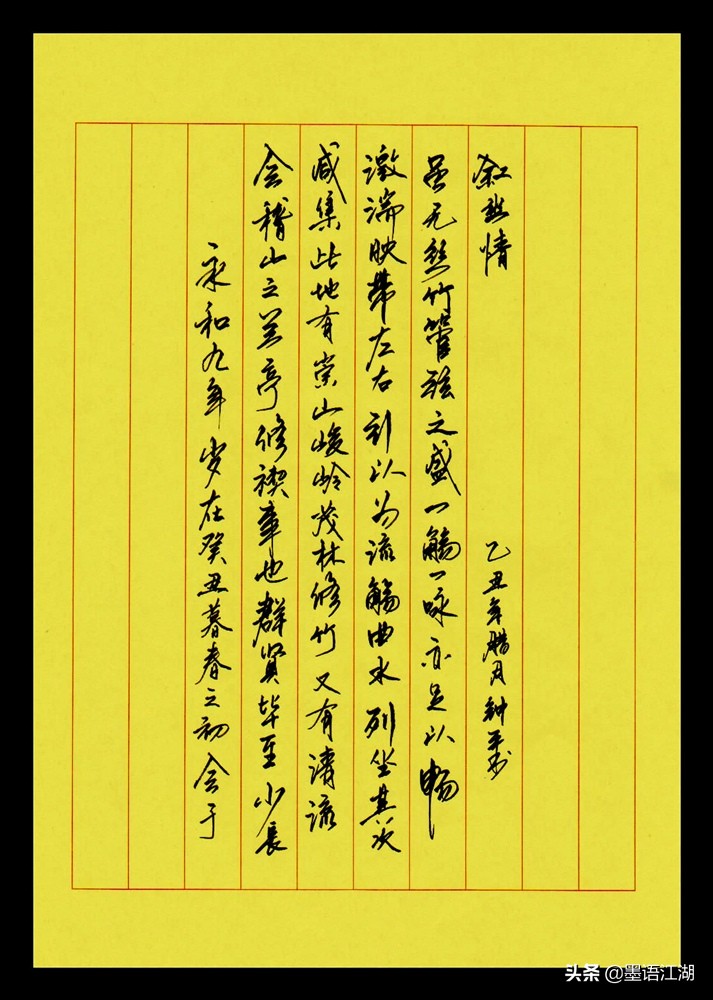 永和九年岁在癸丑暮春之初会于
会稽山之兰亭修禊事也群贤毕至少长
咸集此地有崇山峻岭茂林修竹又有清流
激湍映带左右引以为流觞曲水列坐其次
虽无丝竹管弦之盛一觞一咏亦足以畅
叙幽情
乙丑年腊月钟平书
头条 @墨语江湖